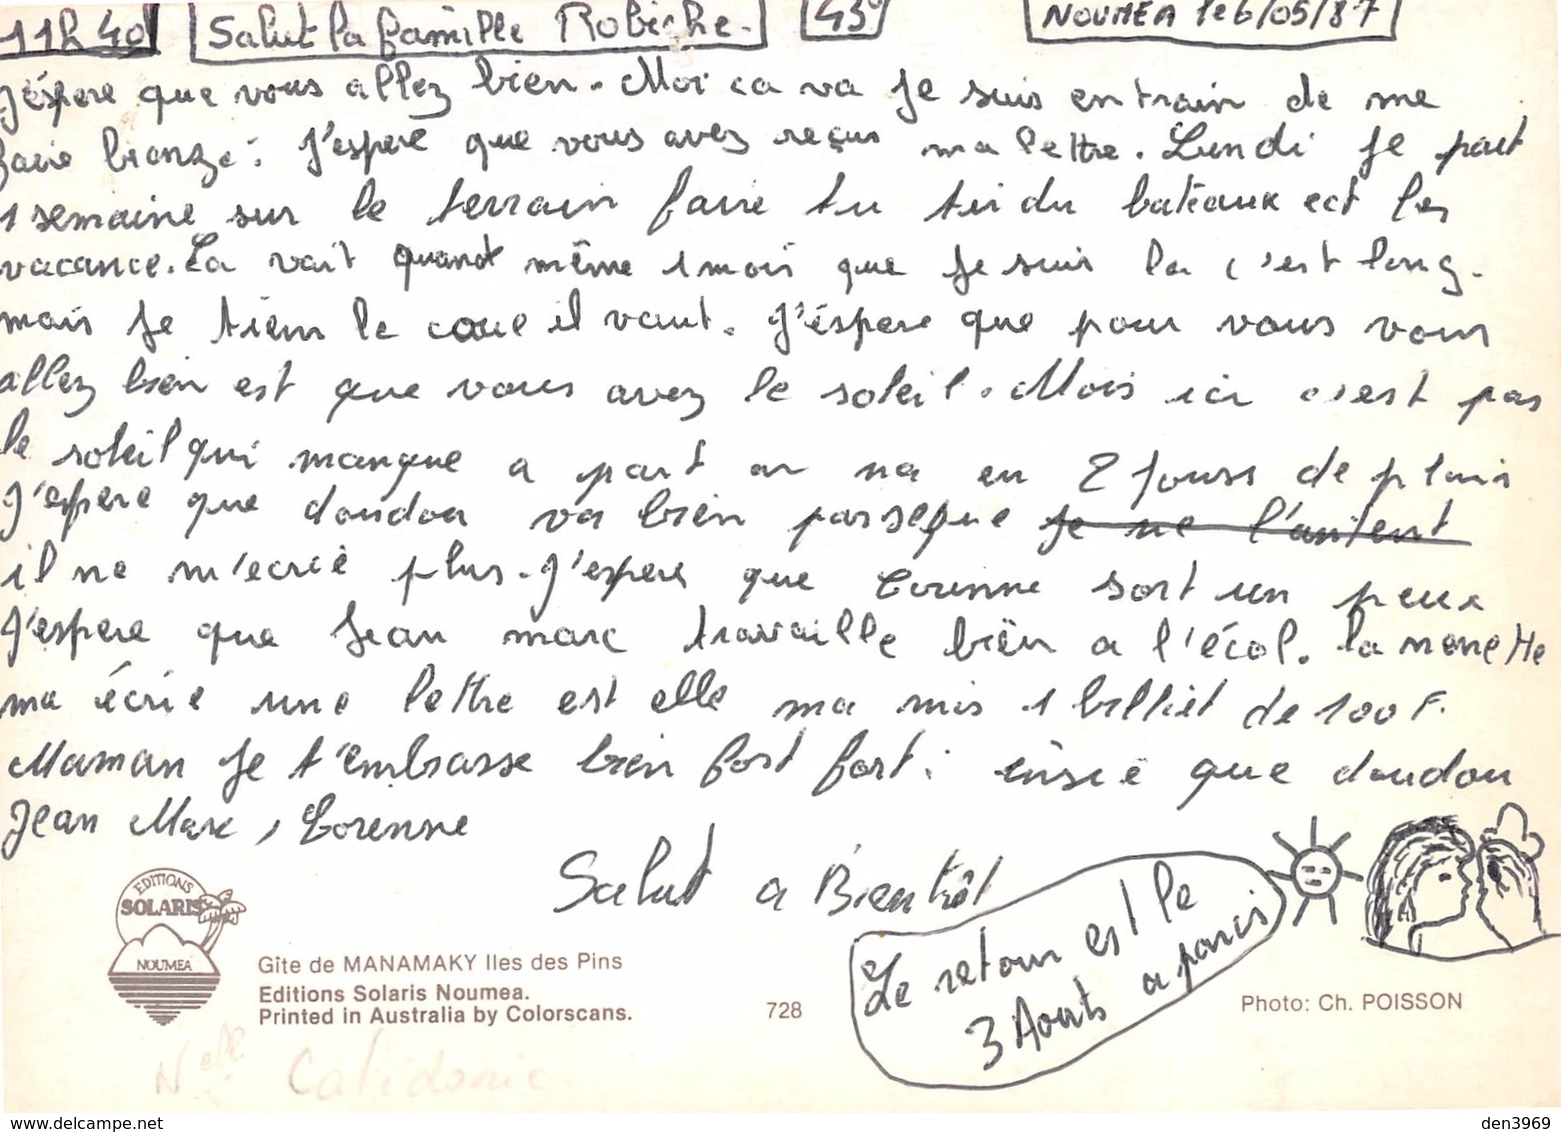 11h 40 Salut la famille Robiche. 45° NOUMEA le 6/05/87
J'éspere que vous allez bien. Moi ca va Je suis entrain de me
faire bronzé. J'espere que vous avez reçus ma lettre. Lundi Je part
1 semaine sur le terrain faire tu tir du bateaux est les
vacance. Ca vait quand même 1 mois que Je suis la c'est long.
mais Je tiens le coue il vaut. J'éspere que pour vous vous
allez bien est que vous avez le soleil. Mois ici c'est pas
le soleil qui manque a part on na eu 2 Jours de pluis
J'espere que doudou va bien parseque Je ne l'
il ne m'ecrie plus. J'espere que Corinne sort un peux
J'espere que Jean marc travaille bien a l'écol. la nenette
ma écrie une lettre est elle ma mis 1 billiet de 100 F.
Maman Je t'embrasse bien fort fort. insie que doudou
Jean Marc, Corenne
Salut a Bientôt
Le retour est le
3 Aouts a paris
EDITIONS
SOLARIS
NOUMEA
Gîte de MANAMAKY Iles des Pins
Editions Solaris Noumea.
Printed in Australia by Colorscans.
728
Photo: Ch. POISSON
Nelle Calédonie
den3969